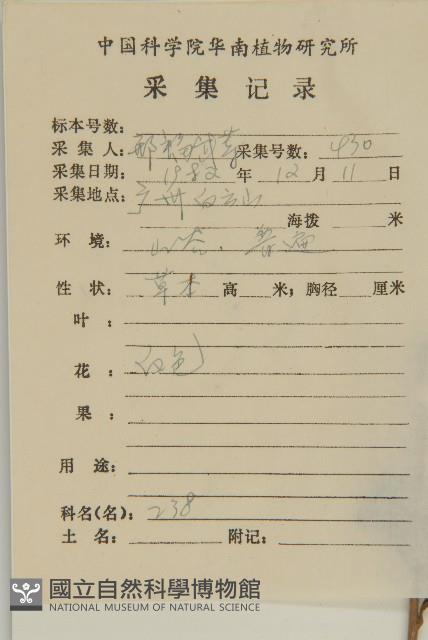 中国科学院华南植物研究所
采集记录
标本号数:
采集人: 采集号数: 430
采集日期: 1982年12月11日
采集地点: 广州白云山
海拨 米
环境: 山谷.普遍
性状: 草本 高 米; 胸径 厘米
叶:
花: 白色
果:
用途:
科名(名): 238
土名: 附记:
國立自然科學博物館
NATIONAL MUSEUM OF NATURAL SCIENCE